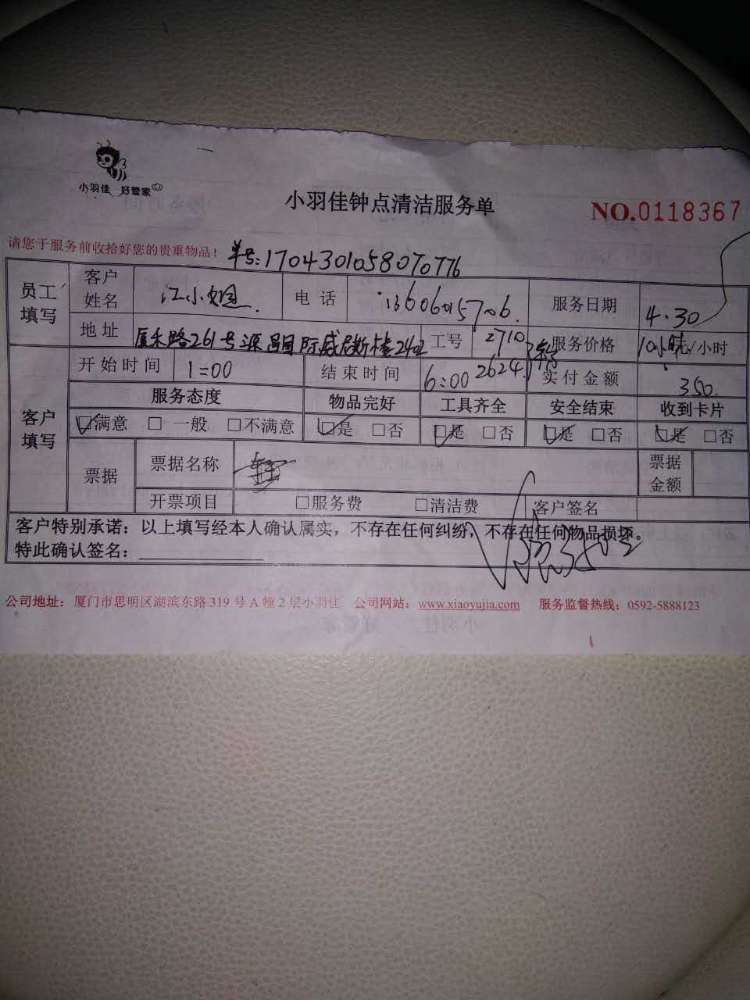 小羽佳 好管家
小羽佳钟点清洁服务单
NO.0118367
请您于服务前收拾好您的贵重物品！
单号:1704301058070776
员工填写
客户姓名 江小姐 电话 服务日期 4.30
地址 厦禾路261号源昌国际威尼斯楼 工号 2710 服务价格 10小时/小时
2624
客户填写
开始时间 1:00 结束时间 6:00 实付金额 350
服务态度 物品完好 工具齐全 安全结束 收到卡片
☑满意 □一般 □不满意 ☑是 □否 ☑是 □否 ☑是 □否 ☑是 □否
票据 票据名称 票据金额
开票项目 □服务费 □清洁费 客户签名
客户特别承诺：以上填写经本人确认属实，不存在任何纠纷，不存在任何物品损坏。
特此确认签名：
公司地址：厦门市思明区湖滨东路 319 号 A 幢 2 层小羽佳 公司网站：www.xiaoyujia.com 服务监督热线：0592-5888123